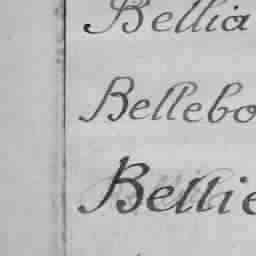 Bellia
Bellebo
Bellie